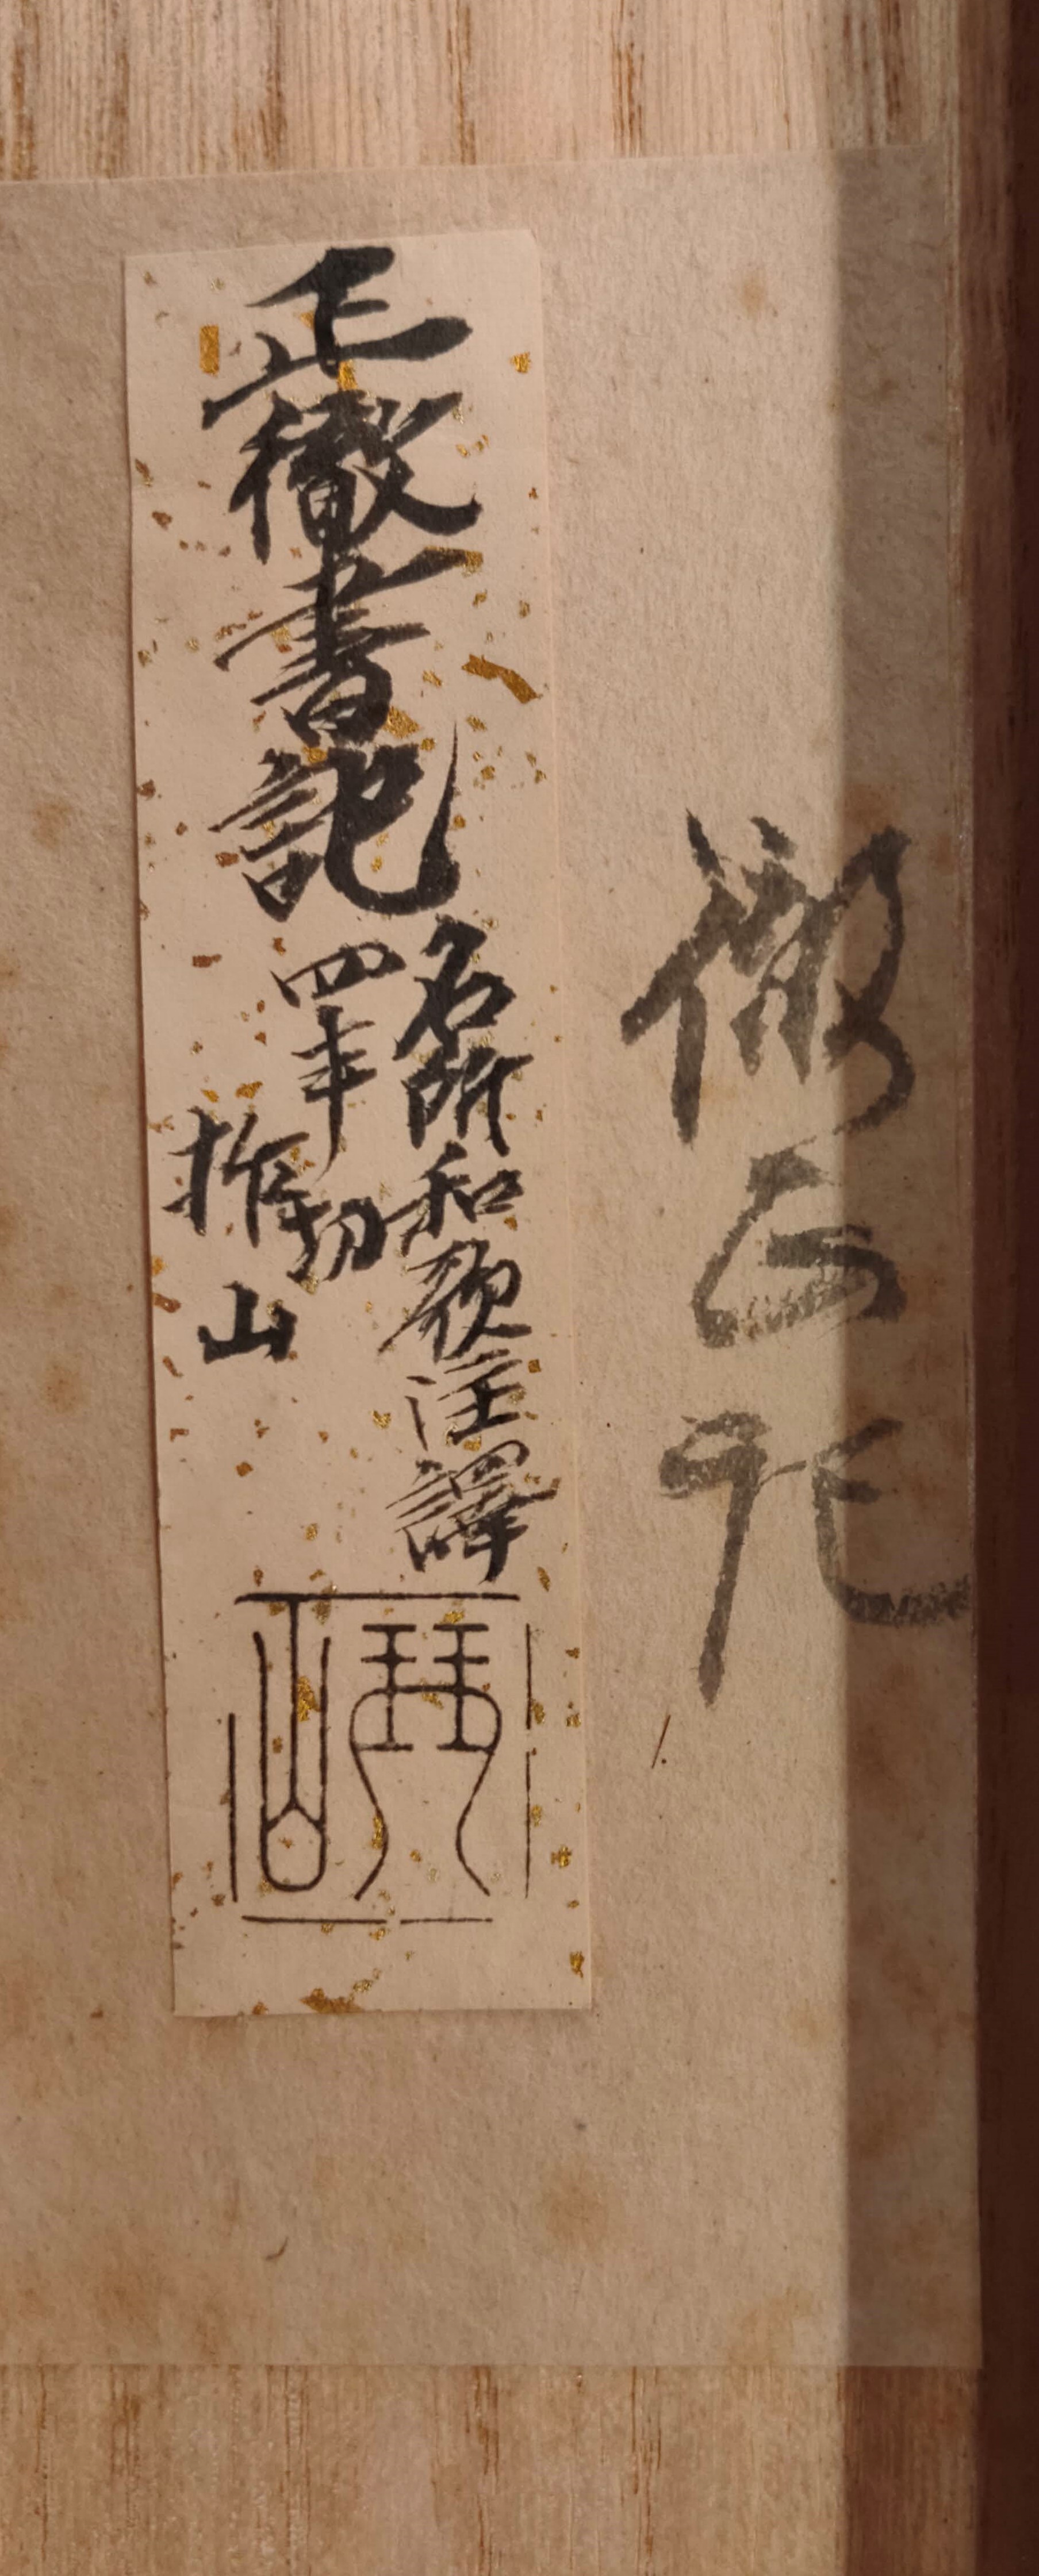 徹正記
正徹書記
名所和歌注譯
四半切
拵
山
琴山